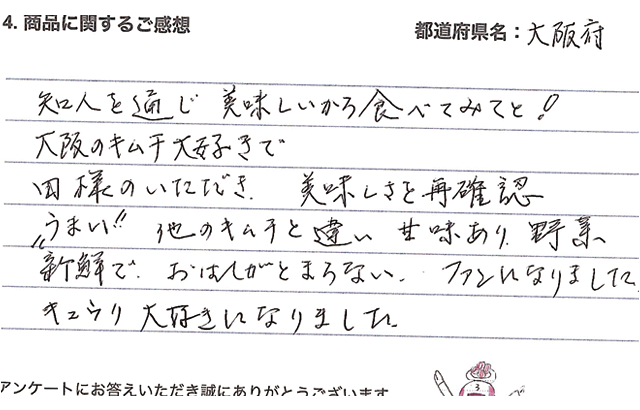 4. 商品に関するご感想
都道府県名：大阪府
知人を通じ 美味しいから食べてみてと！
大阪のキムチ大好きで
四様のいただき. 美味しさを再確認
"うまい!! 他のキムチと違い 甘味あり. 野菜
新鮮で. おはしがとまらない. ファンになりました.
キュウリ 大好きになりました.
アンケートにお答えいただき誠にありがとうございます